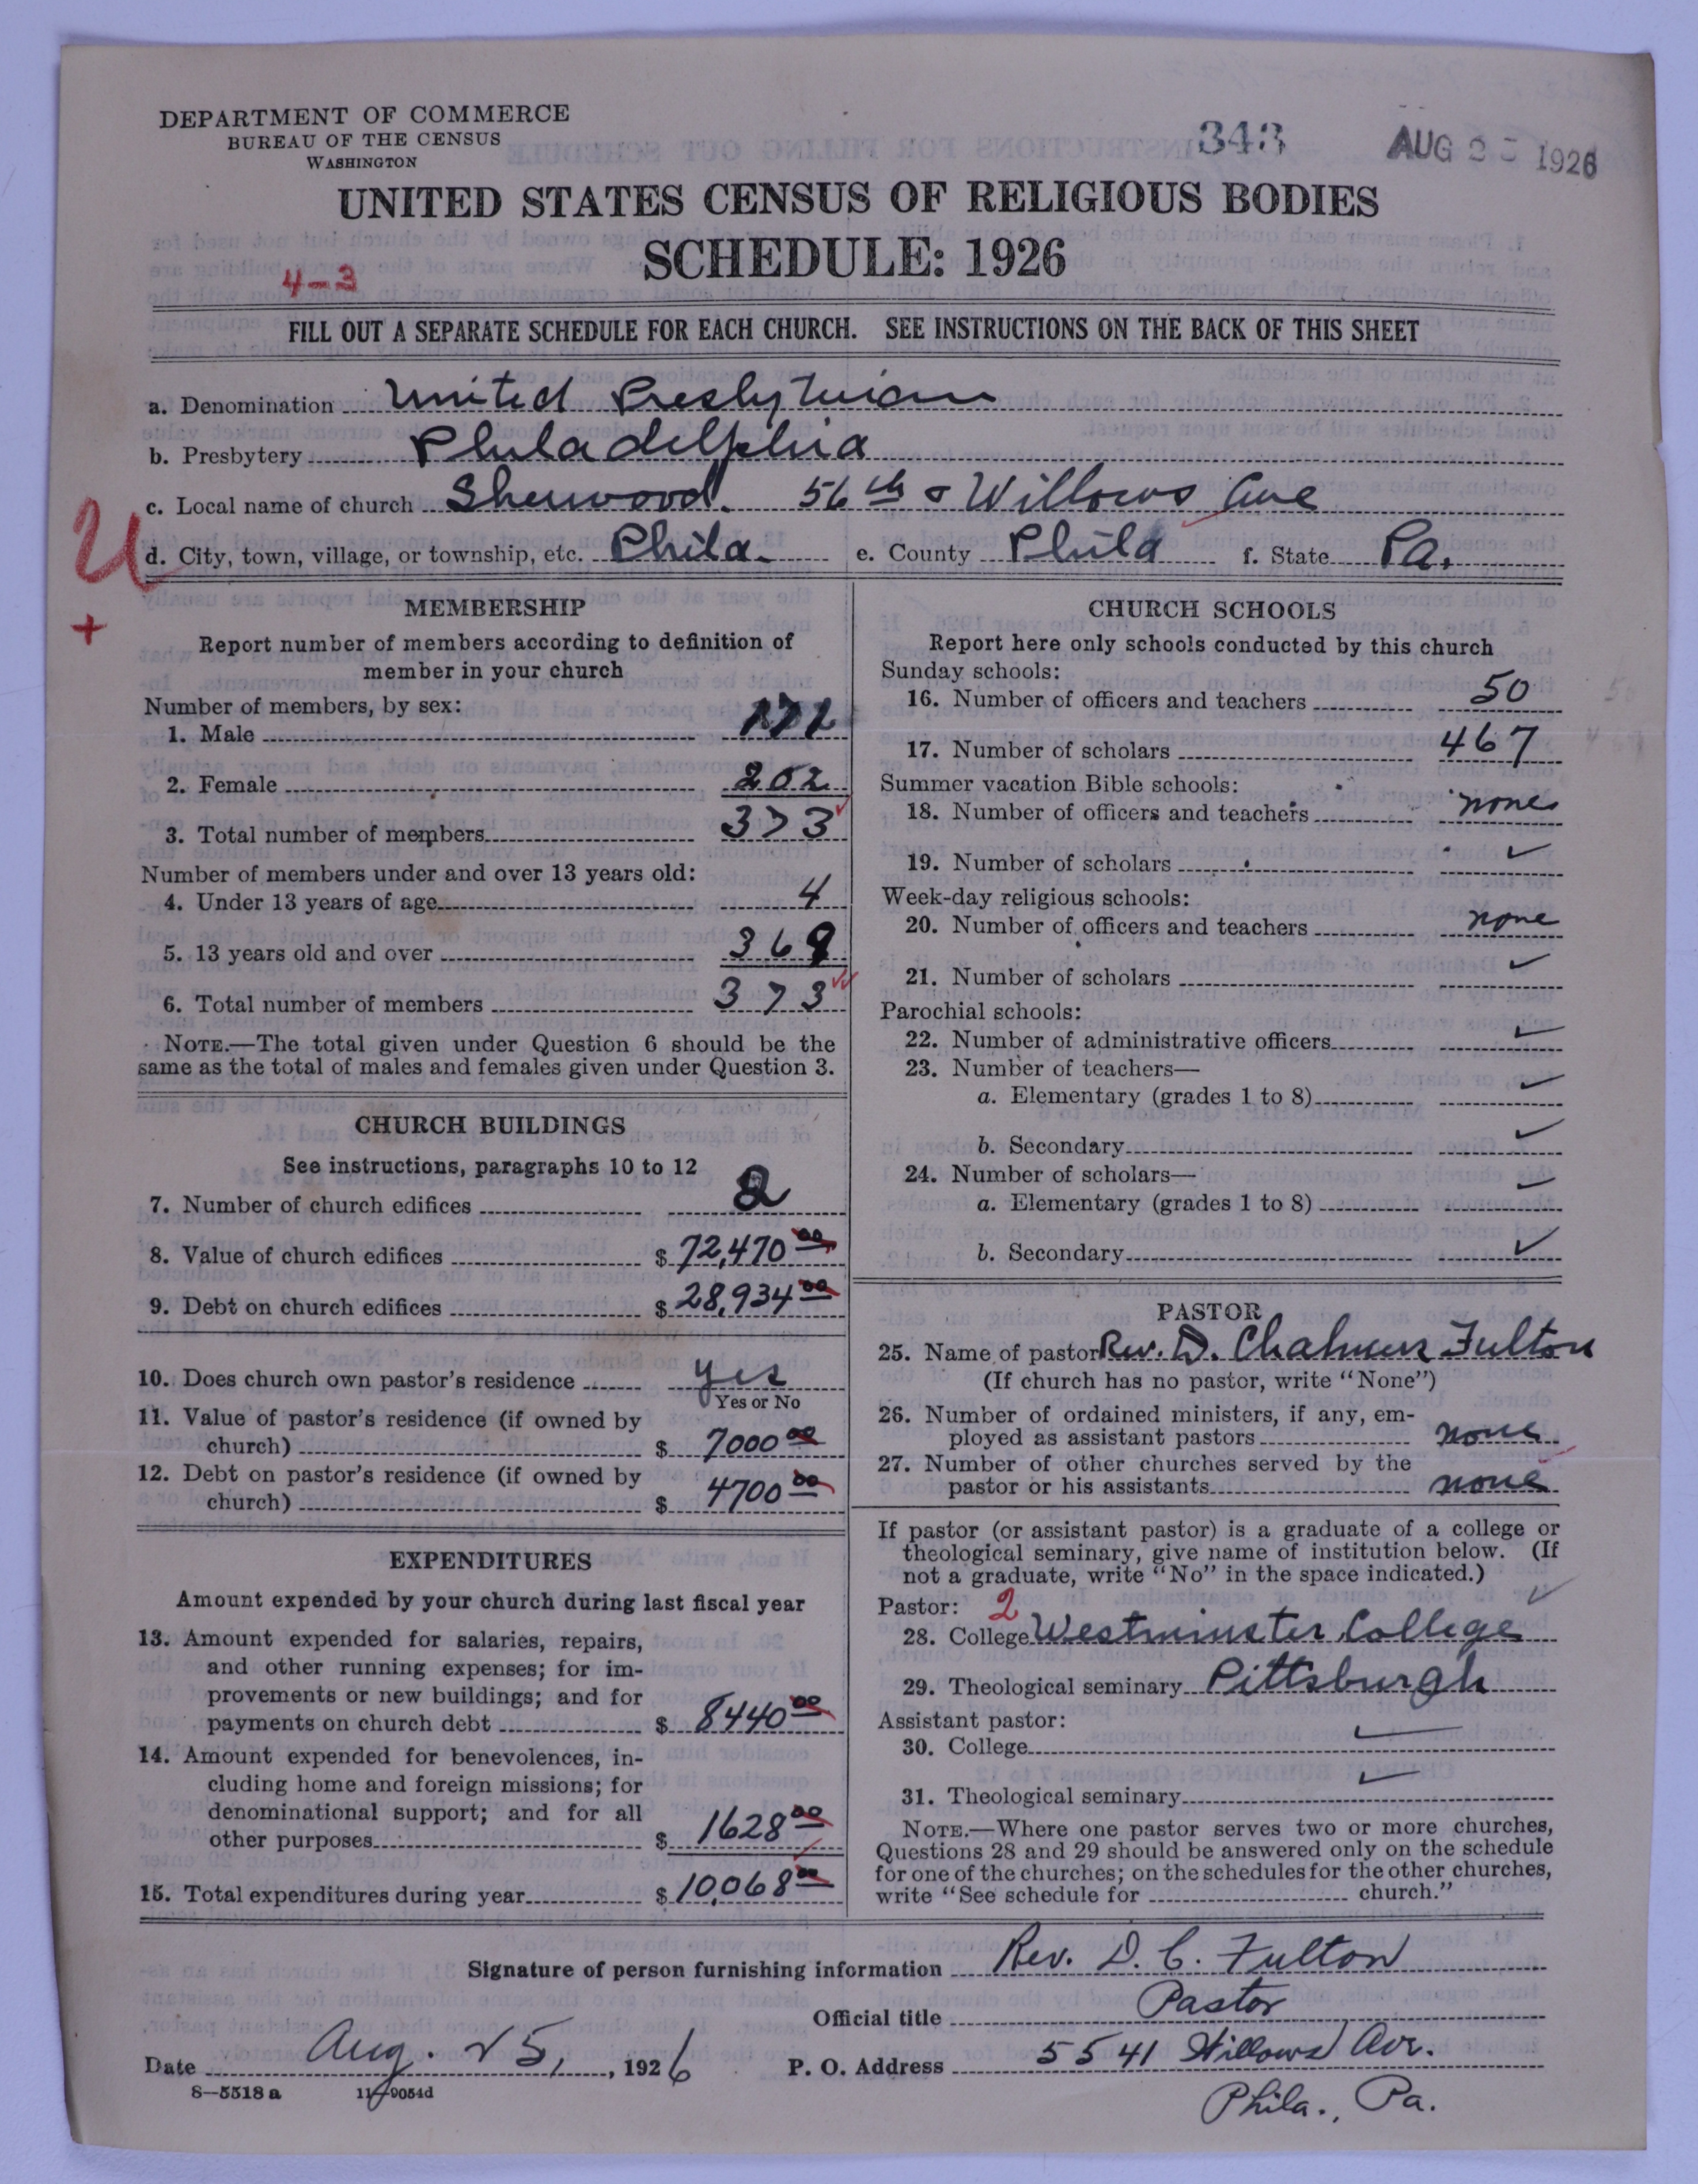 DEPARTMENT OF COMMERCE
BUREAU OF THE CENSUS
WASHINGTON
343
AUG 25 1926
UNITED STATES CENSUS OF RELIGIOUS BODIES
SCHEDULE: 1926
4-3
FILL OUT A SEPARATE SCHEDULE FOR EACH CHURCH. SEE INSTRUCTIONS ON THE BACK OF THIS SHEET
a. Denomination United Presbyterian
b. Presbytery Philadelphia
c. Local name of church Sherwood. 56th & Willows Ave
U
d. City, town, village, or township, etc. Phila. e. County Phila f. State Pa.
+
MEMBERSHIP
Report number of members according to definition of
member in your church
Number of members, by sex:
1. Male 171
2. Female 202
3. Total number of members 373
Number of members under and over 13 years old:
4. Under 13 years of age 4
5. 13 years old and over 369
6. Total number of members 373
NOTE.—The total given under Question 6 should be the
same as the total of males and females given under Question 3.
CHURCH BUILDINGS
See instructions, paragraphs 10 to 12
7. Number of church edifices 2
8. Value of church edifices $ 72,470 00
9. Debt on church edifices $ 28,934 00
10. Does church own pastor's residence yes
Yes or No
11. Value of pastor's residence (if owned by
church) $ 7000 00
12. Debt on pastor's residence (if owned by
church) $ 4700 00
EXPENDITURES
Amount expended by your church during last fiscal year
13. Amount expended for salaries, repairs,
and other running expenses; for im-
provements or new buildings; and for
payments on church debt $ 8440 00
14. Amount expended for benevolences, in-
cluding home and foreign missions; for
denominational support; and for all
other purposes $ 1628 00
15. Total expenditures during year $ 10,068 00
CHURCH SCHOOLS
Report here only schools conducted by this church
Sunday schools:
16. Number of officers and teachers 50
17. Number of scholars 467
Summer vacation Bible schools:
18. Number of officers and teachers none
19. Number of scholars ✓
Week-day religious schools:
20. Number of officers and teachers none
21. Number of scholars ✓
Parochial schools:
22. Number of administrative officers ✓
23. Number of teachers—
a. Elementary (grades 1 to 8) ✓
b. Secondary ✓
24. Number of scholars—
a. Elementary (grades 1 to 8) ✓
b. Secondary ✓
PASTOR
25. Name of pastor Rev. D. Chalmers Fulton
(If church has no pastor, write "None")
26. Number of ordained ministers, if any, em-
ployed as assistant pastors none
27. Number of other churches served by the
pastor or his assistants none
If pastor (or assistant pastor) is a graduate of a college or
theological seminary, give name of institution below. (If
not a graduate, write "No" in the space indicated.)
Pastor: 2
28. College Westminster College
29. Theological seminary Pittsburgh
Assistant pastor:
30. College ✓
31. Theological seminary ✓
NOTE.—Where one pastor serves two or more churches,
Questions 28 and 29 should be answered only on the schedule
for one of the churches; on the schedules for the other churches,
write "See schedule for church."
Signature of person furnishing information Rev. D. C. Fulton
Official title Pastor
Date Aug. 25, 1926 P. O. Address 5541 Willows Ave.
8—5518 a 11—9054d
Phila., Pa.